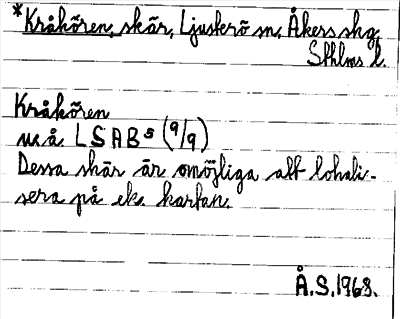 *Kråkören, skär, Ljusterö sn, Åkers skg,
Sthlms l.
Kråkören
u.å. LSAB 5 (9/9)
Dessa skär är omöjliga att lokali-
sera på ek. kartan.
Å.S. 1968.